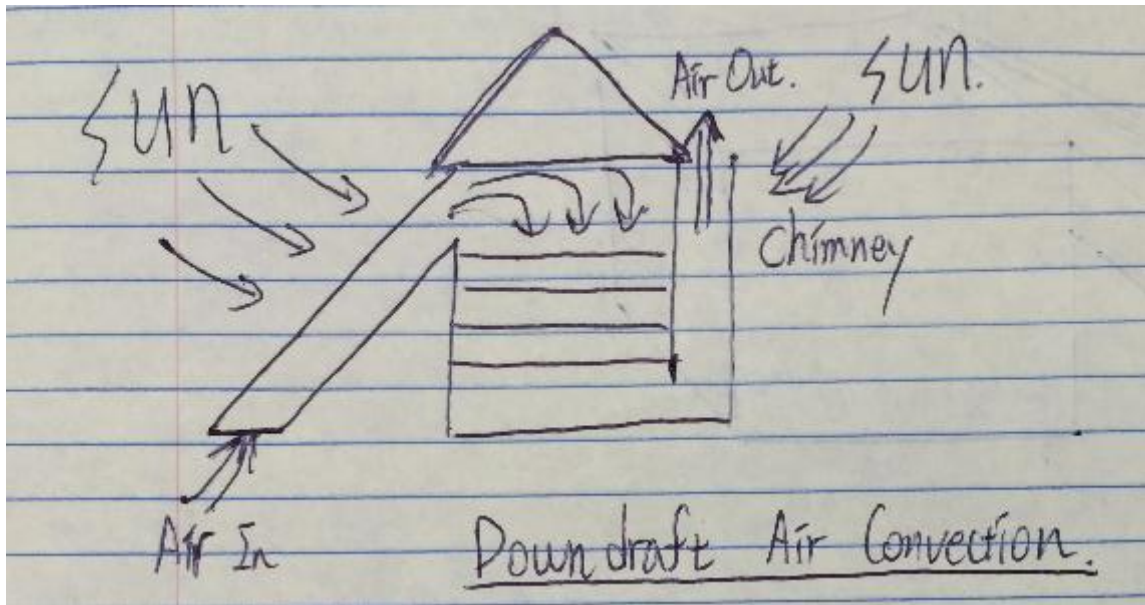 Sun
Air Out.
Sun.
Chimney
Air In
Downdraft Air Convection.